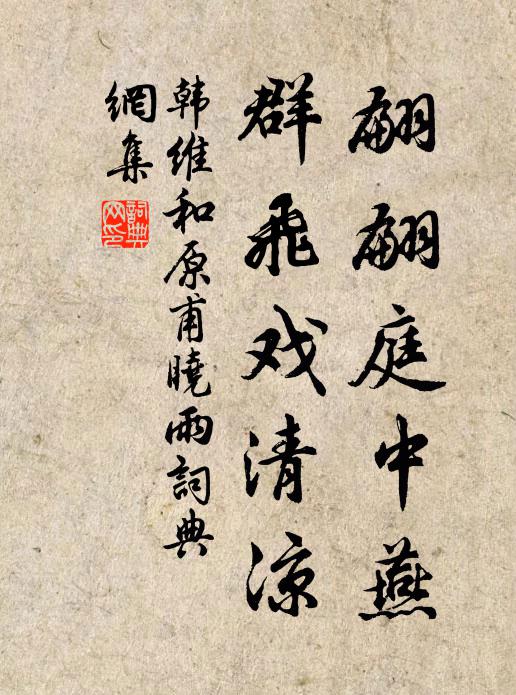 翩翩庭中燕
群飛戏清凉
韩維和原甫曉雨詞典
網集
詞典网印